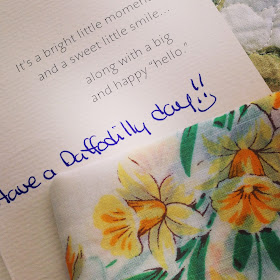 It's a bright little moment
and a sweet little smile...
along with a big
and happy "hello."
Have a Daffodilly day!!